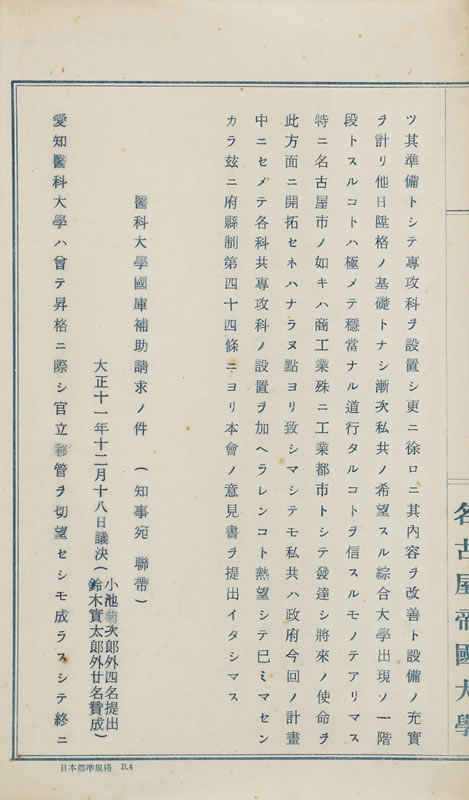 ツ其準備トシテ專攻科ヲ設置シ更ニ徐ロニ其內容ヲ改善ト設備ノ充實
ヲ計リ他日陞格ノ基礎トナシ漸次私共ノ希望スル綜合大學出現ソ一階
段トスルコトハ極メテ穩當ナル道行タルコトヲ信スルモノテアリマス
特ニ名古屋市ノ如キハ商工業殊ニ工業都市トシテ發達シ將來ノ使命ヲ
此方面ニ開拓セネハナラヌ點ヨリ致シマシテモ私共ハ政府今回ノ計畫
中ニセメテ各科共專攻科ノ設置ヲ加ヘラレンコト熱望シテ巳ミマセン
カラ玆ニ府縣制第四十四條ニヨリ本會ノ意見書ヲ提出イタシマス
醫科大學國庫補助請求ノ件 (知事宛 聯帶)
大正十一年十二月十八日議決(小池菊次郎外四名提出
鈴木實太郎外廿名贊成)
愛知醫科大學ハ曾テ昇格ニ際シ官立移管ヲ切望セシモ成ラスシテ終ニ
名古屋帝國大學
日本標準規格 B.4